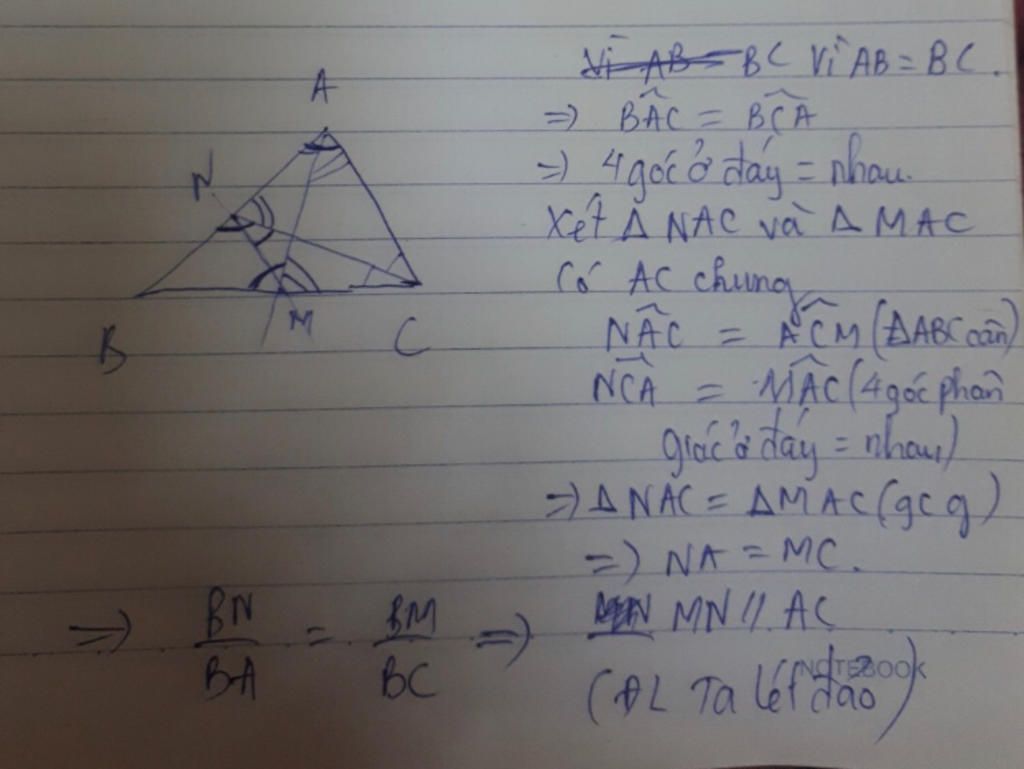 A
N
M
B
C
Vì AB = BC Vì AB = BC.
=> BÂC = BĈA
=> 4 góc ở đáy = nhau.
Xét Δ NAC và Δ MAC
Có AC chung
NÂC = AĈM (ΔABC cân)
NĈA = MÂC (4 góc phân
giác ở đáy = nhau)
=> Δ NAC = Δ MAC (gcg)
=> NA = MC.
=> BN/BA = BM/BC => MN // AC
(ĐL Ta lét đảo)
NOTEBOOK